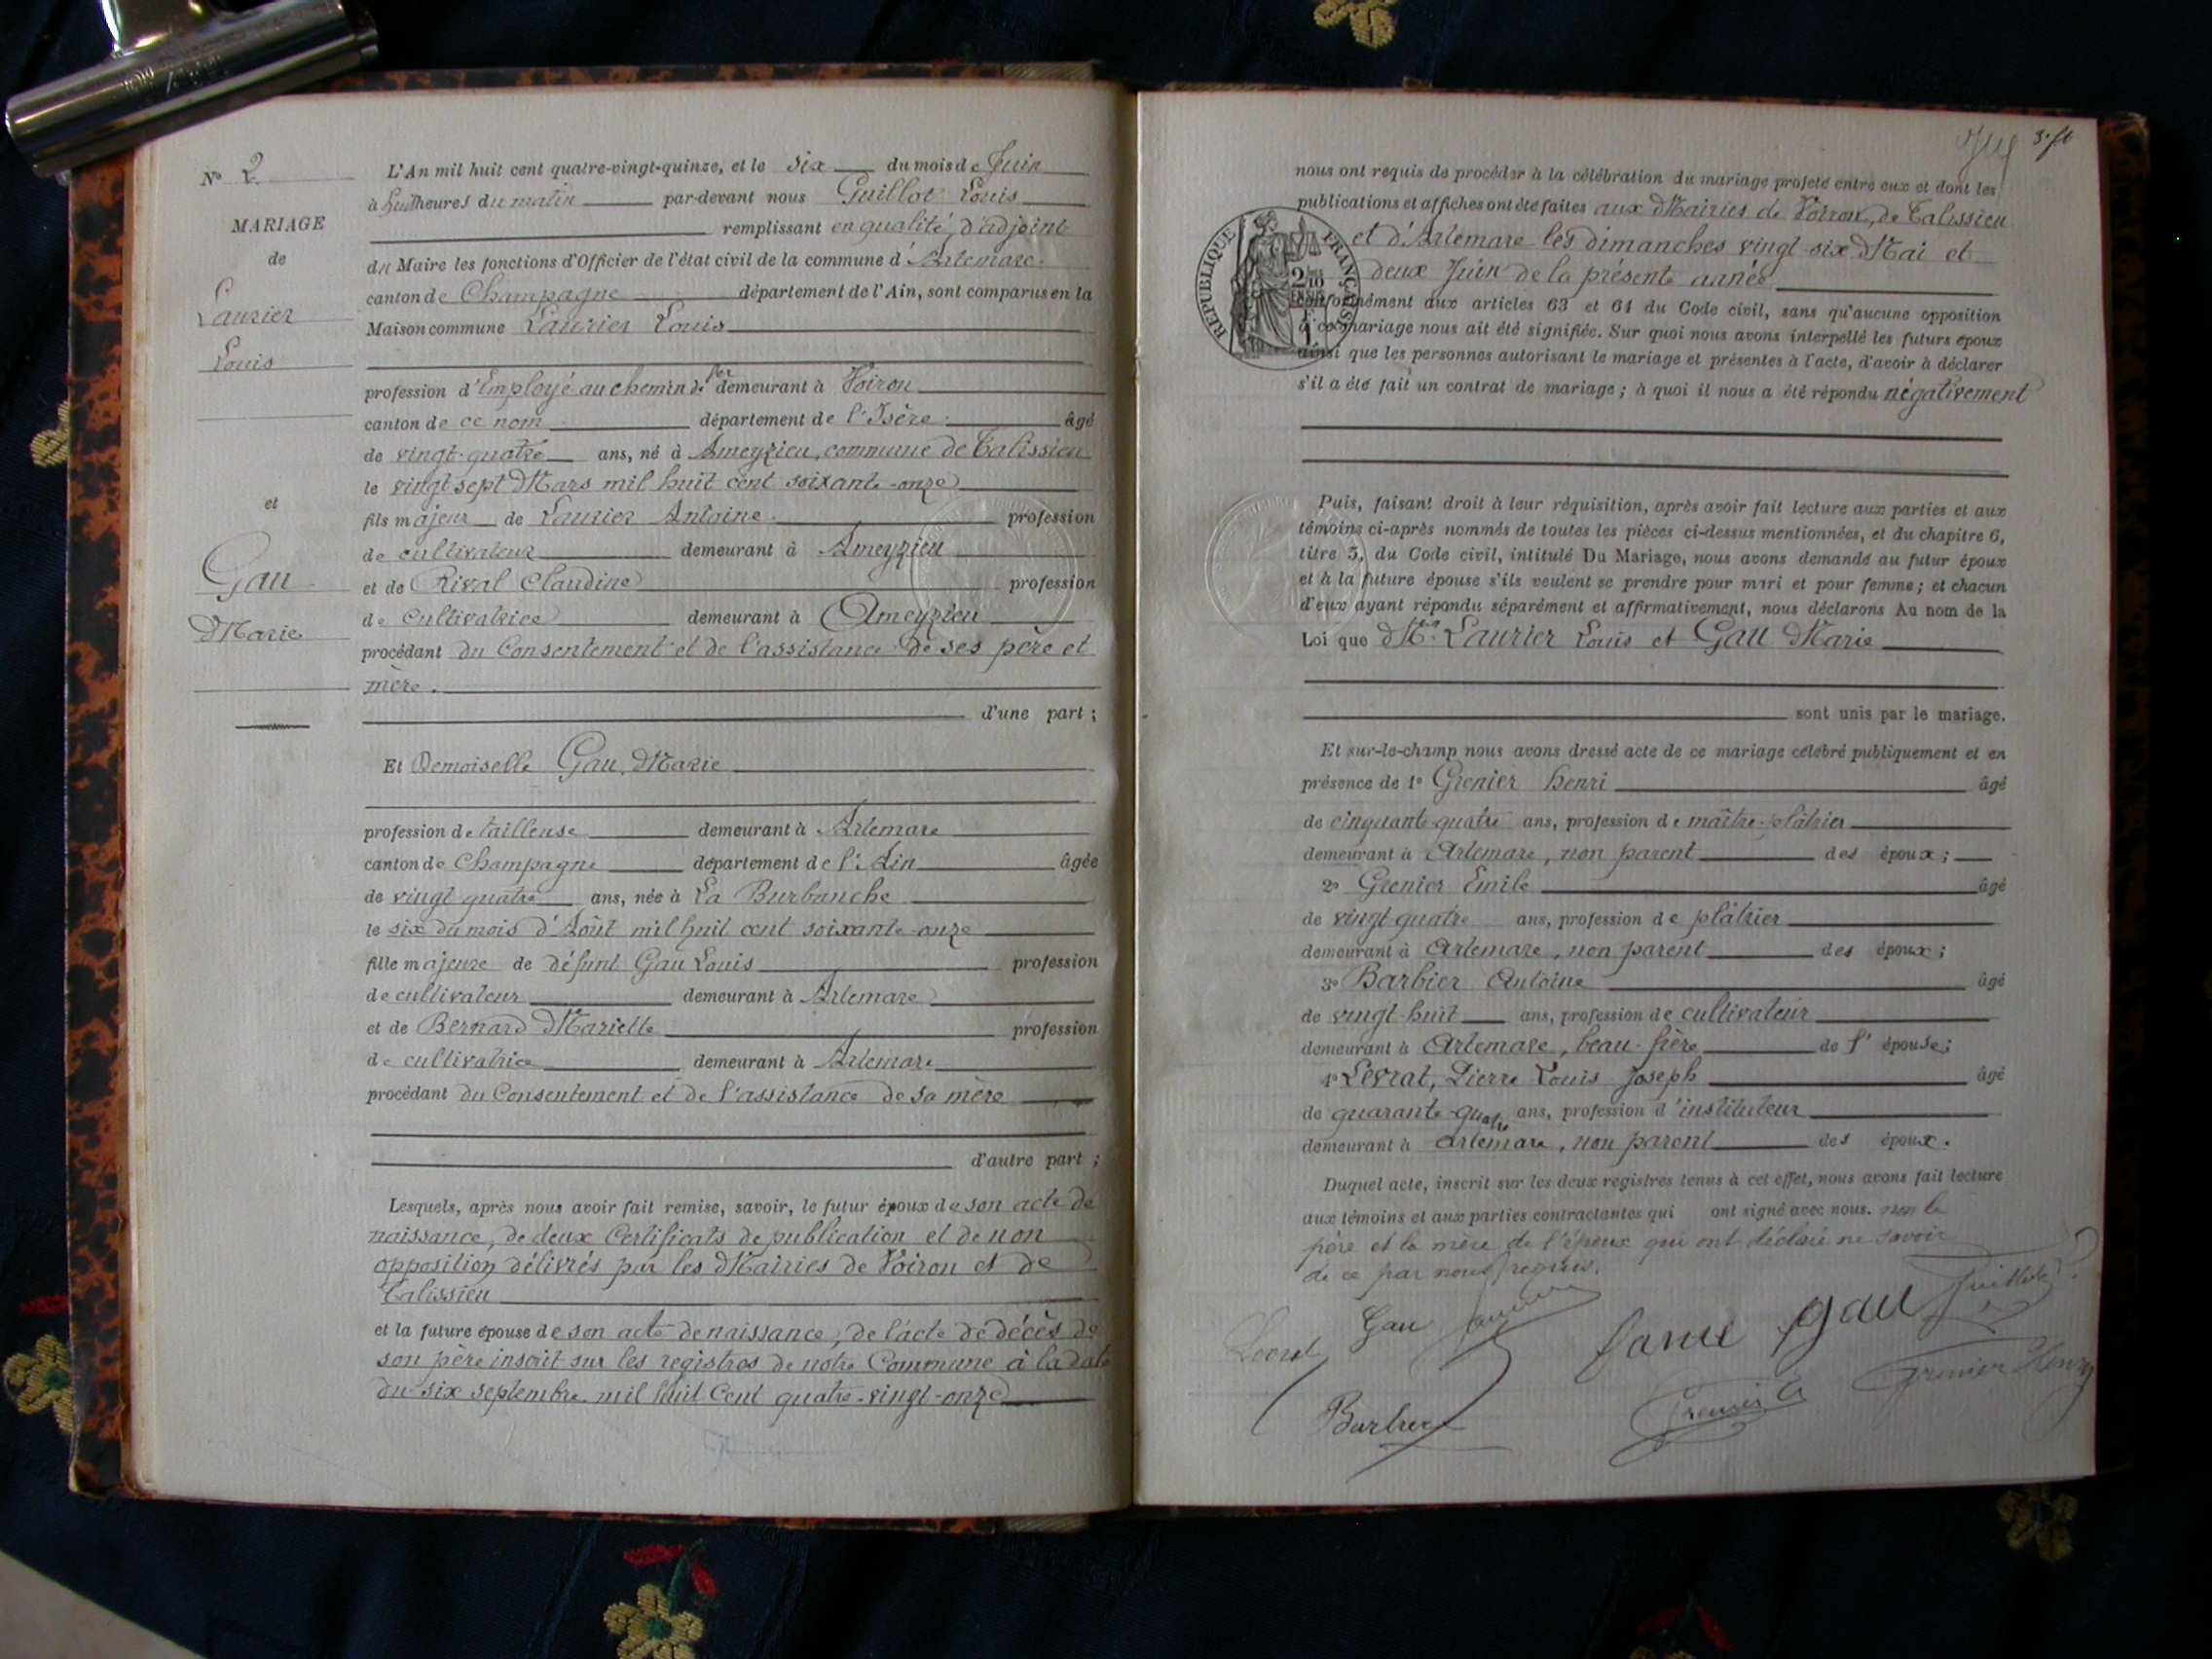 N° 2
MARIAGE
de
Laurier
Louis
et
Gau
Marie
L'An mil huit cent quatre-vingt-quinze, et le six du mois de Juin
à huit heures du matin par-devant nous Guillot Louis
remplissant en qualité d'adjoint
du Maire les fonctions d'Officier de l'état civil de la commune d'Artemare
canton de Champagne département de l'Ain, sont comparus en la
Maison commune Laurier Louis
profession d'Employé au chemin de fer demeurant à Voiron
canton de ce nom département de l'Isère âgé
de vingt-quatre ans, né à Ameyzieu, commune de Talissieu
le vingt sept Mars mil huit cent soixante-onze
fils majeur de Laurier Antoine profession
de cultivateur demeurant à Ameyzieu
et de Rival Claudine profession
de cultivatrice demeurant à Ameyzieu
procédant du Consentement et de l'assistance de ses père et
mère.
d'une part ;
Et Demoiselle Gau Marie
profession de tailleuse demeurant à Artemare
canton de Champagne département de l'Ain âgée
de vingt quatre ans, née à La Burbanche
le six du mois d'Août mil huit cent soixante-onze
fille majeure de défunt Gau Louis profession
de cultivateur demeurant à Artemare
et de Bernard Mariette profession
de cultivatrice demeurant à Artemare
procédant du Consentement et de l'assistance de sa mère
d'autre part ;
Lesquels, après nous avoir fait remise, savoir, le futur époux de son acte de
naissance, de deux Certificats de publication et de non
opposition délivrés par les Mairies de Voiron et de
Talissieu
et la future épouse de son acte de naissance, de l'acte de décès de
son père inscrit sur les registres de notre Commune à la date
du six septembre mil huit Cent quatre-vingt-onze
nous ont requis de procéder à la célébration du mariage projeté entre eux et dont les
publications et affiches ont été faites aux Mairies de Voiron, de Talissieu
et d'Artemare les dimanches vingt-six Mai et
deux Juin de la présente année
conformément aux articles 63 et 64 du Code civil, sans qu'aucune opposition
à ce mariage nous ait été signifiée. Sur quoi nous avons interpellé les futurs époux
ainsi que les personnes autorisant le mariage et présentes à l'acte, d'avoir à déclarer
s'il a été fait un contrat de mariage ; à quoi il nous a été répondu négativement
RÉPUBLIQUE FRANÇAISE
Puis, faisant droit à leur réquisition, après avoir fait lecture aux parties et aux
témoins ci-après nommés de toutes les pièces ci-dessus mentionnées, et du chapitre 6,
titre 5, du Code civil, intitulé Du Mariage, nous avons demandé au futur époux
et à la future épouse s'ils veulent se prendre pour mari et pour femme ; et chacun
d'eux ayant répondu séparément et affirmativement, nous déclarons Au nom de la
Loi que Laurier Louis et Gau Marie
sont unis par le mariage.
Et sur-le-champ nous avons dressé acte de ce mariage célébré publiquement et en
présence de 1° Grenier henri âgé
de cinquante-quatre ans, profession de maître-plâtrier
demeurant à Artemare, non parent des époux ;
2° Grenier Emile âgé
de vingt-quatre ans, profession de plâtrier
demeurant à Artemare, non parent des époux ;
3° Barbier Antoine âgé
de vingt-huit ans, profession de cultivateur
demeurant à Artemare, beau-frère de l'épouse ;
4° Levrat, Pierre Louis Joseph âgé
de quarante-quatre ans, profession d'instituteur
demeurant à Artemare, non parent des époux.
Duquel acte, inscrit sur les deux registres tenus à cet effet, nous avons fait lecture
aux témoins et aux parties contractantes qui ont signé avec nous. non le
père et la mère de l'époux qui ont déclaré ne savoir
de ce par nous requis.
Gau
gau
Guillot
Grenier Henry